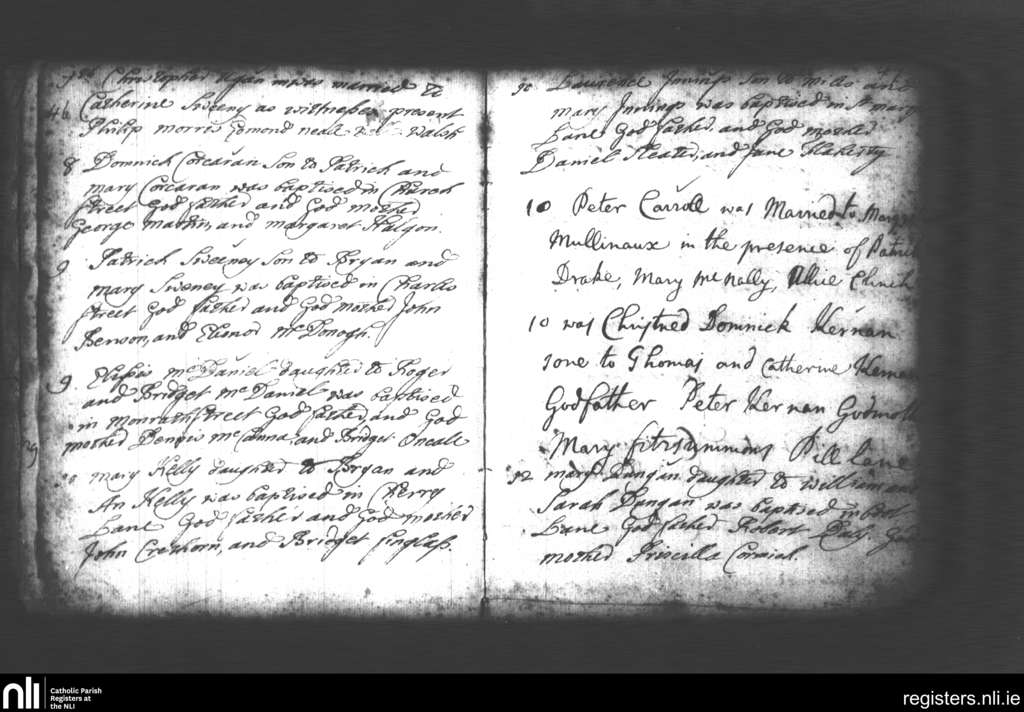 Christopher was married to
46 Catherine Sweeny as witnesses present
Philip morris Edmond neall Walsh
8 Domnick Corcaran Son to Patrick and
mary Corcaran was baptised in Church
street God father and God mother
George and margaret Halgon.
9 Patrick Sweeney Son to Bryan and
mary Sweney was baptised in Charles
street God father and God mother John
Benson, and Elionor McDonogh.
9. McDaniel daughter to Roger
and Bridget McDaniel was baptised
in street God father, and God
mother Dennis McCanna, and Bridget Oneale
29
10 mary Kelly daughter to Bryan and
An Kelly was baptised in Cherry
Lane God father and God mother
John and Bridget finglass.
10 Laurence Jnnings Son to miles and
mary Jnnings was baptised in St mary
Lane God father, and God mother
Daniel Sleater, and Jane
10 Peter Carroll was Married to
Mullinaux in the presence of
Drake, Mary McNally,
10 was Christned Domnick Kernan
sone to Thomas and Catherine
Godfather Peter Kernan
Mary fitzsymmons Pill Lane
12 mary Dungan daughter to william and
Sarah Dungan was baptised in
Lane God father Robert Daly.
mother Priscilla
nli Catholic Parish
Registers at
the NLI
registers.nli.ie